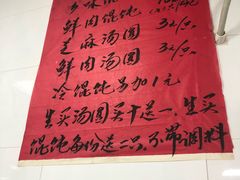 鲜肉馄饨
芝麻汤圆 3元/只
鲜肉汤圆 3元/只
冷馄饨另加1元
生买汤圆买十送一,生买
馄饨每份送二只,不带调料